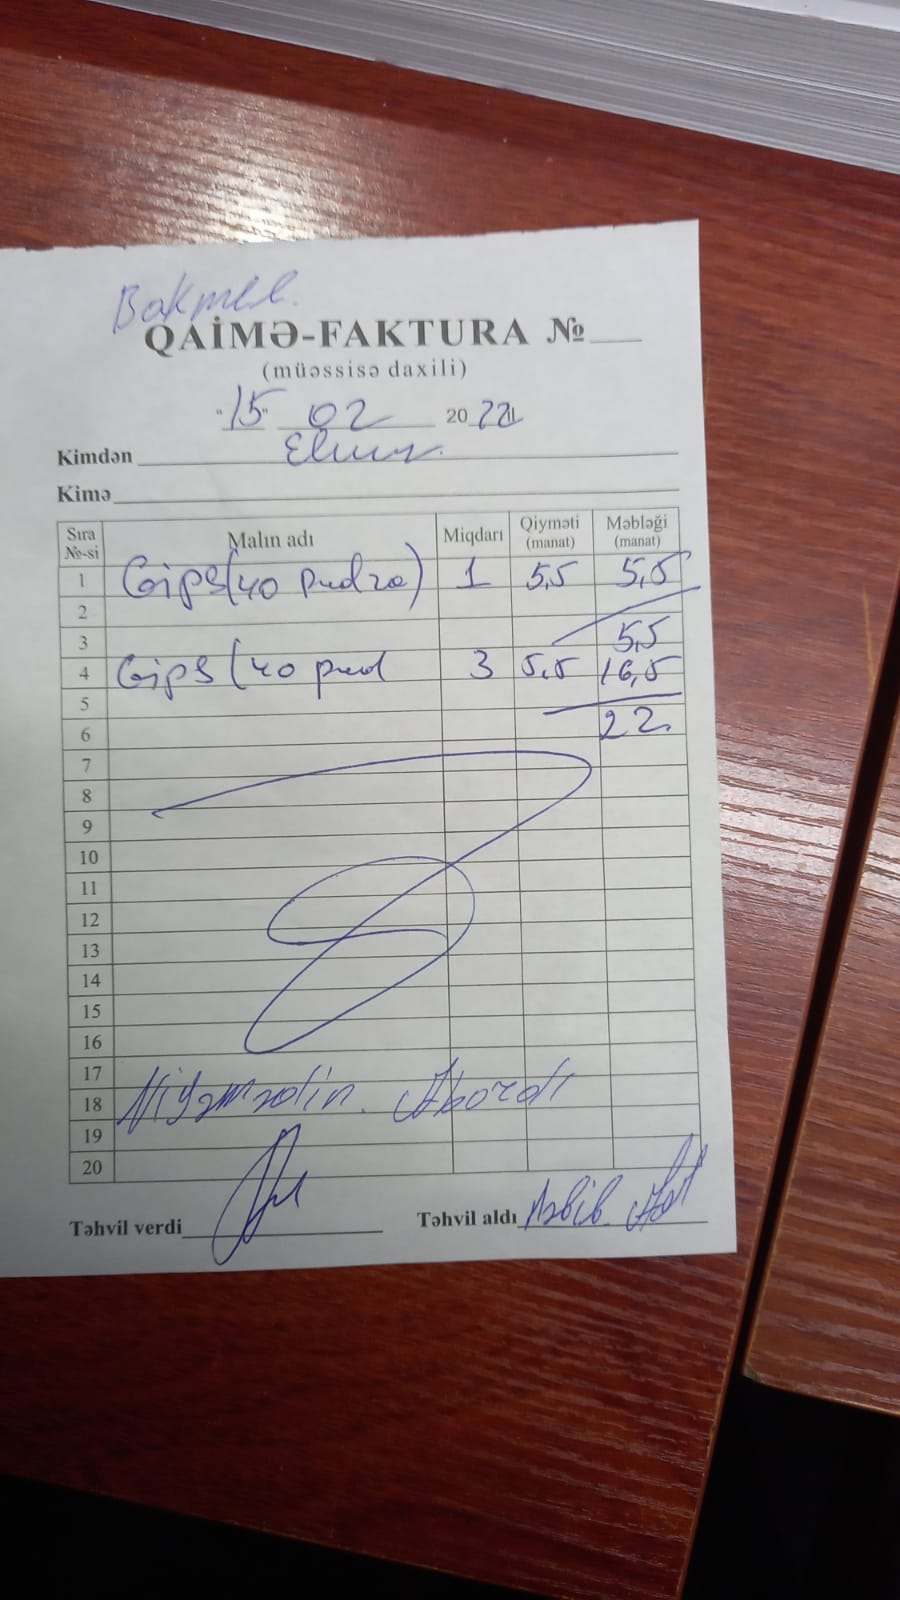 Bakmil.
QAİMƏ-FAKTURA №
(müəssisə daxili)
"15" 02 2022 il
Kimdən
Kimə
Sıra №-si Malın adı Miqdarı Qiyməti (manat) Məbləği (manat)
1 Gips (40 pudra) 1 5,5 5,5
2
3 5,5
4 Gips (40 pud 3 5,5 16,5
5
6 22.
7
8
9
10
11
12
13
14
15
16
17
18
19
20
Təhvil verdi Təhvil aldı